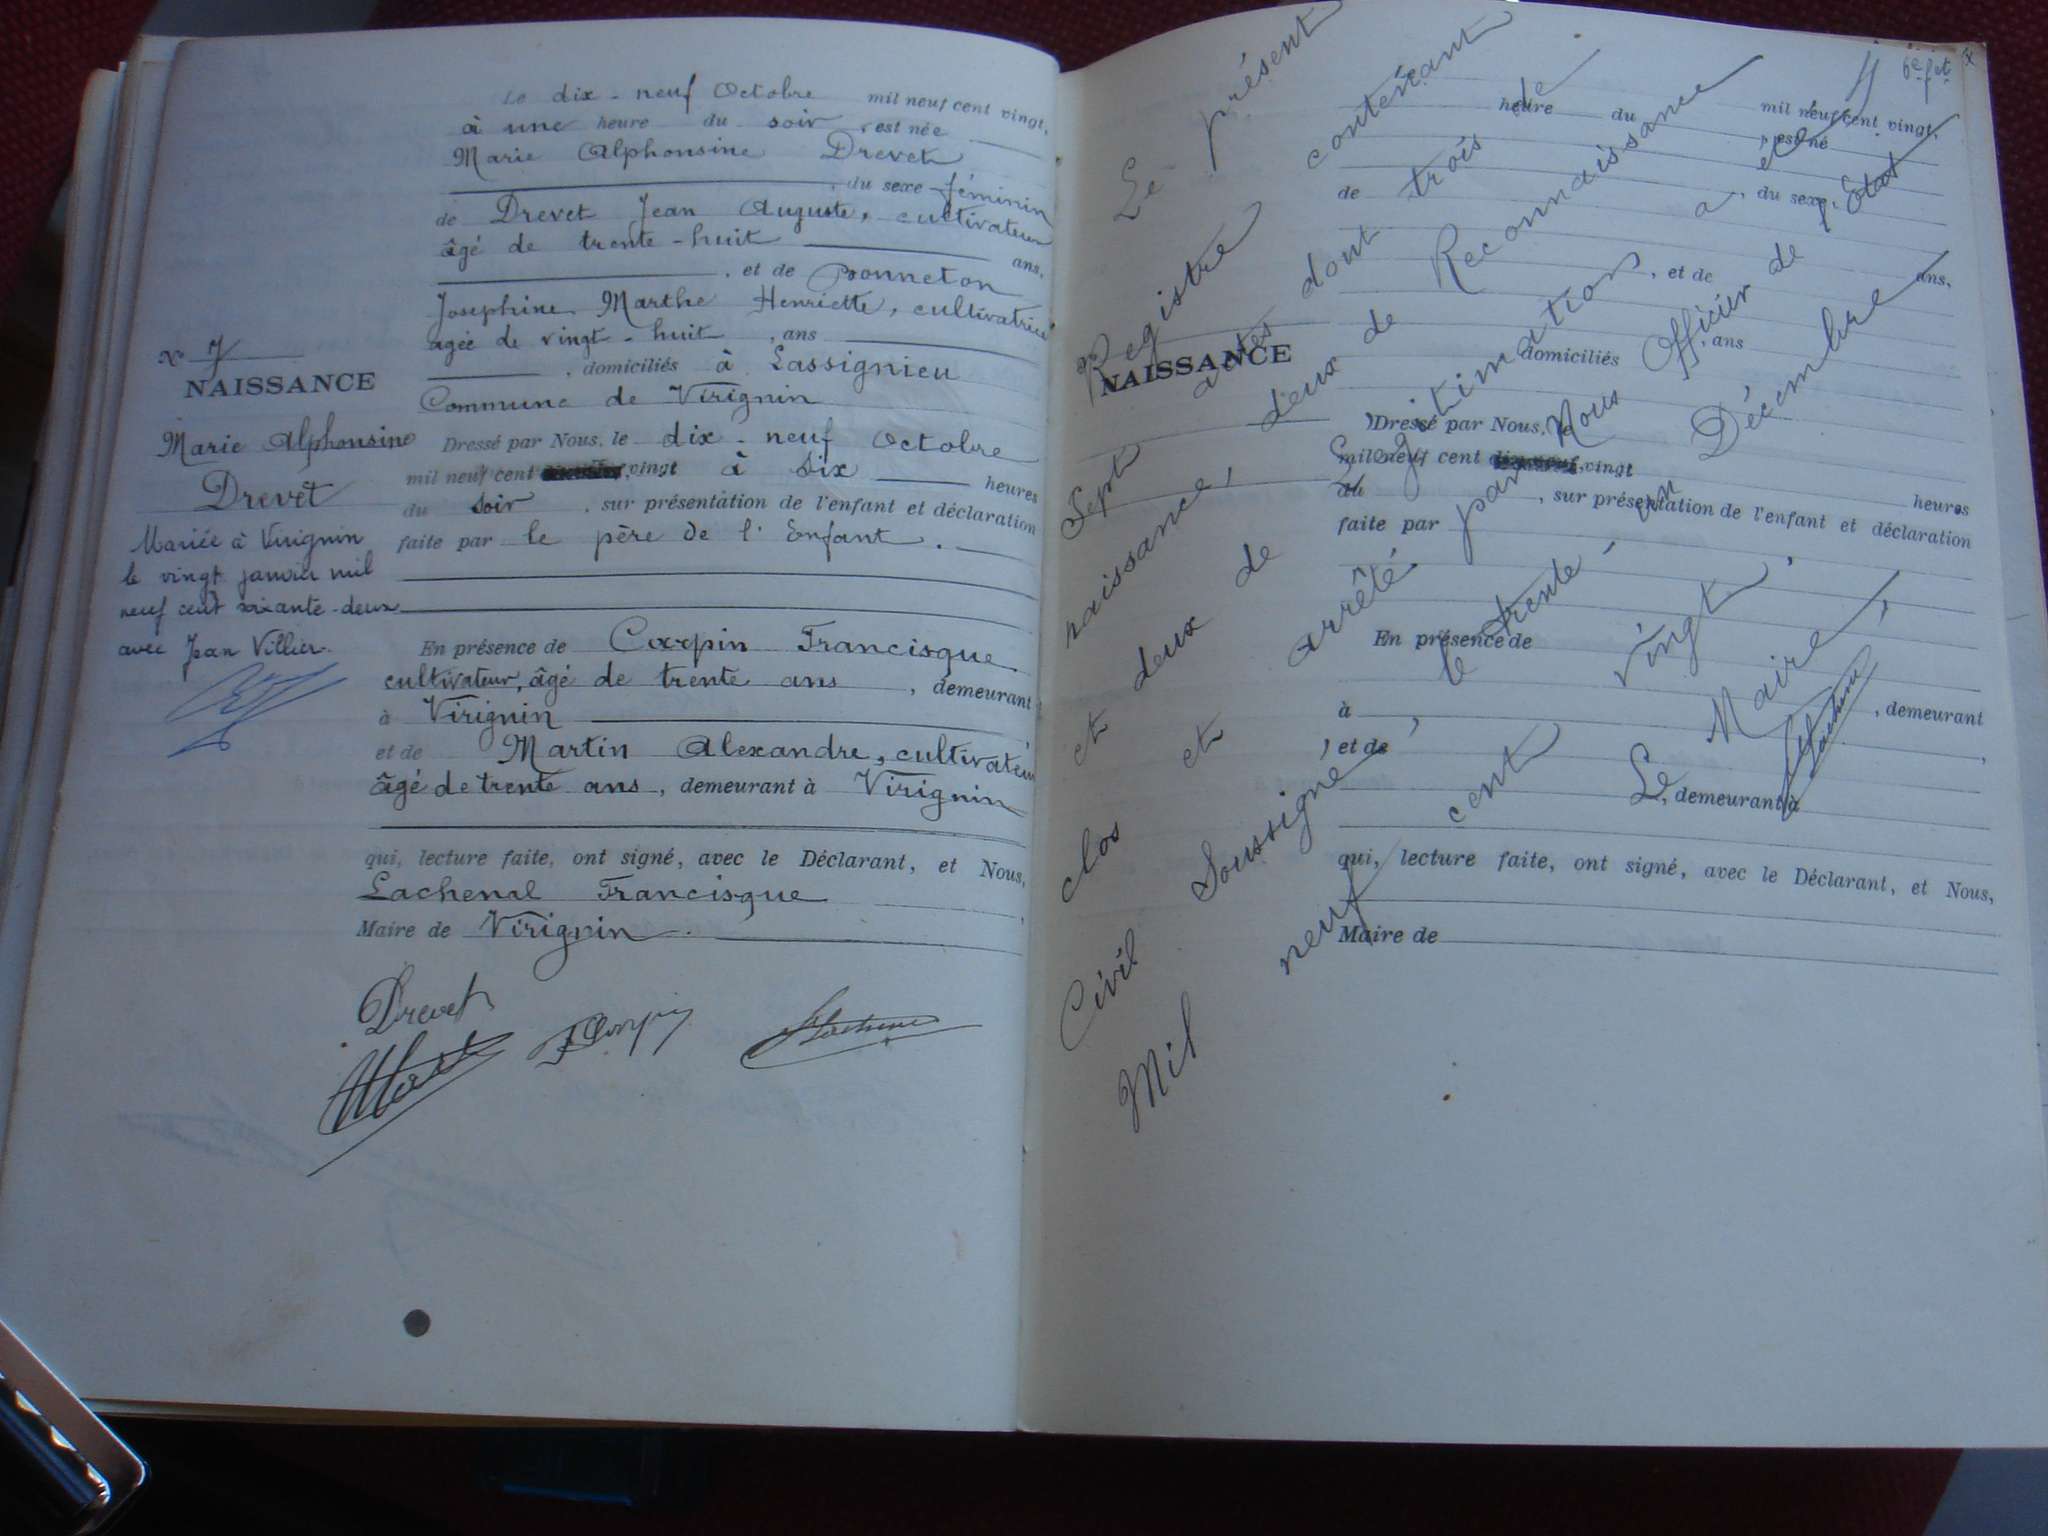 Le dix-neuf Octobre mil neuf cent vingt,
à une heure du soir, est née
Marie Alphonsine Drevet
, du sexe féminin
de Drevet Jean Auguste, cultivateur
âgé de trente-huit ans,
, et de Ponneton
Josephine Marthe Henriette, cultivatrice
agée de vingt-huit, ans
, domiciliés à Lassignieu
Commune de Virignin
Dressé par Nous, le dix-neuf Octobre
mil neuf cent vingt à six heures
du soir, sur présentation de l'enfant et déclaration
faite par le père de l'Enfant.
En présence de Carpin Francisque
cultivateur, âgé de trente ans, demeurant
à Virignin
et de Martin Alexandre, cultivateur
âgé de trente ans, demeurant à Virignin
qui, lecture faite, ont signé, avec le Déclarant, et Nous,
Lachenal Francisque
Maire de Virignin.
Drevet
N° 7
NAISSANCE
Marie Alphonsine
Drevet
Mariée à Virignin
le vingt janvier mil
neuf cent soixante-deux
avec Jean Villier.
6e f et
heure du mil neuf cent vingt,
, est né
de , du sexe
, et de ans,
N°
NAISSANCE
domiciliés , ans
Dressé par Nous, le
mil neuf cent vingt
du heures
, sur présentation de l'enfant et déclaration
faite par
En présence de
à , demeurant
et de
, demeurant à
qui, lecture faite, ont signé, avec le Déclarant, et Nous,
Maire de
Le présent
Registre contenant
Sept actes dont trois de
naissance, deux de Reconnaissance
et deux de Légitimation a été
clos et arrêté par Nous Officier de l'Etat
Civil Soussigné, le trente un Décembre
Mil neuf cent vingt.
Le Maire,